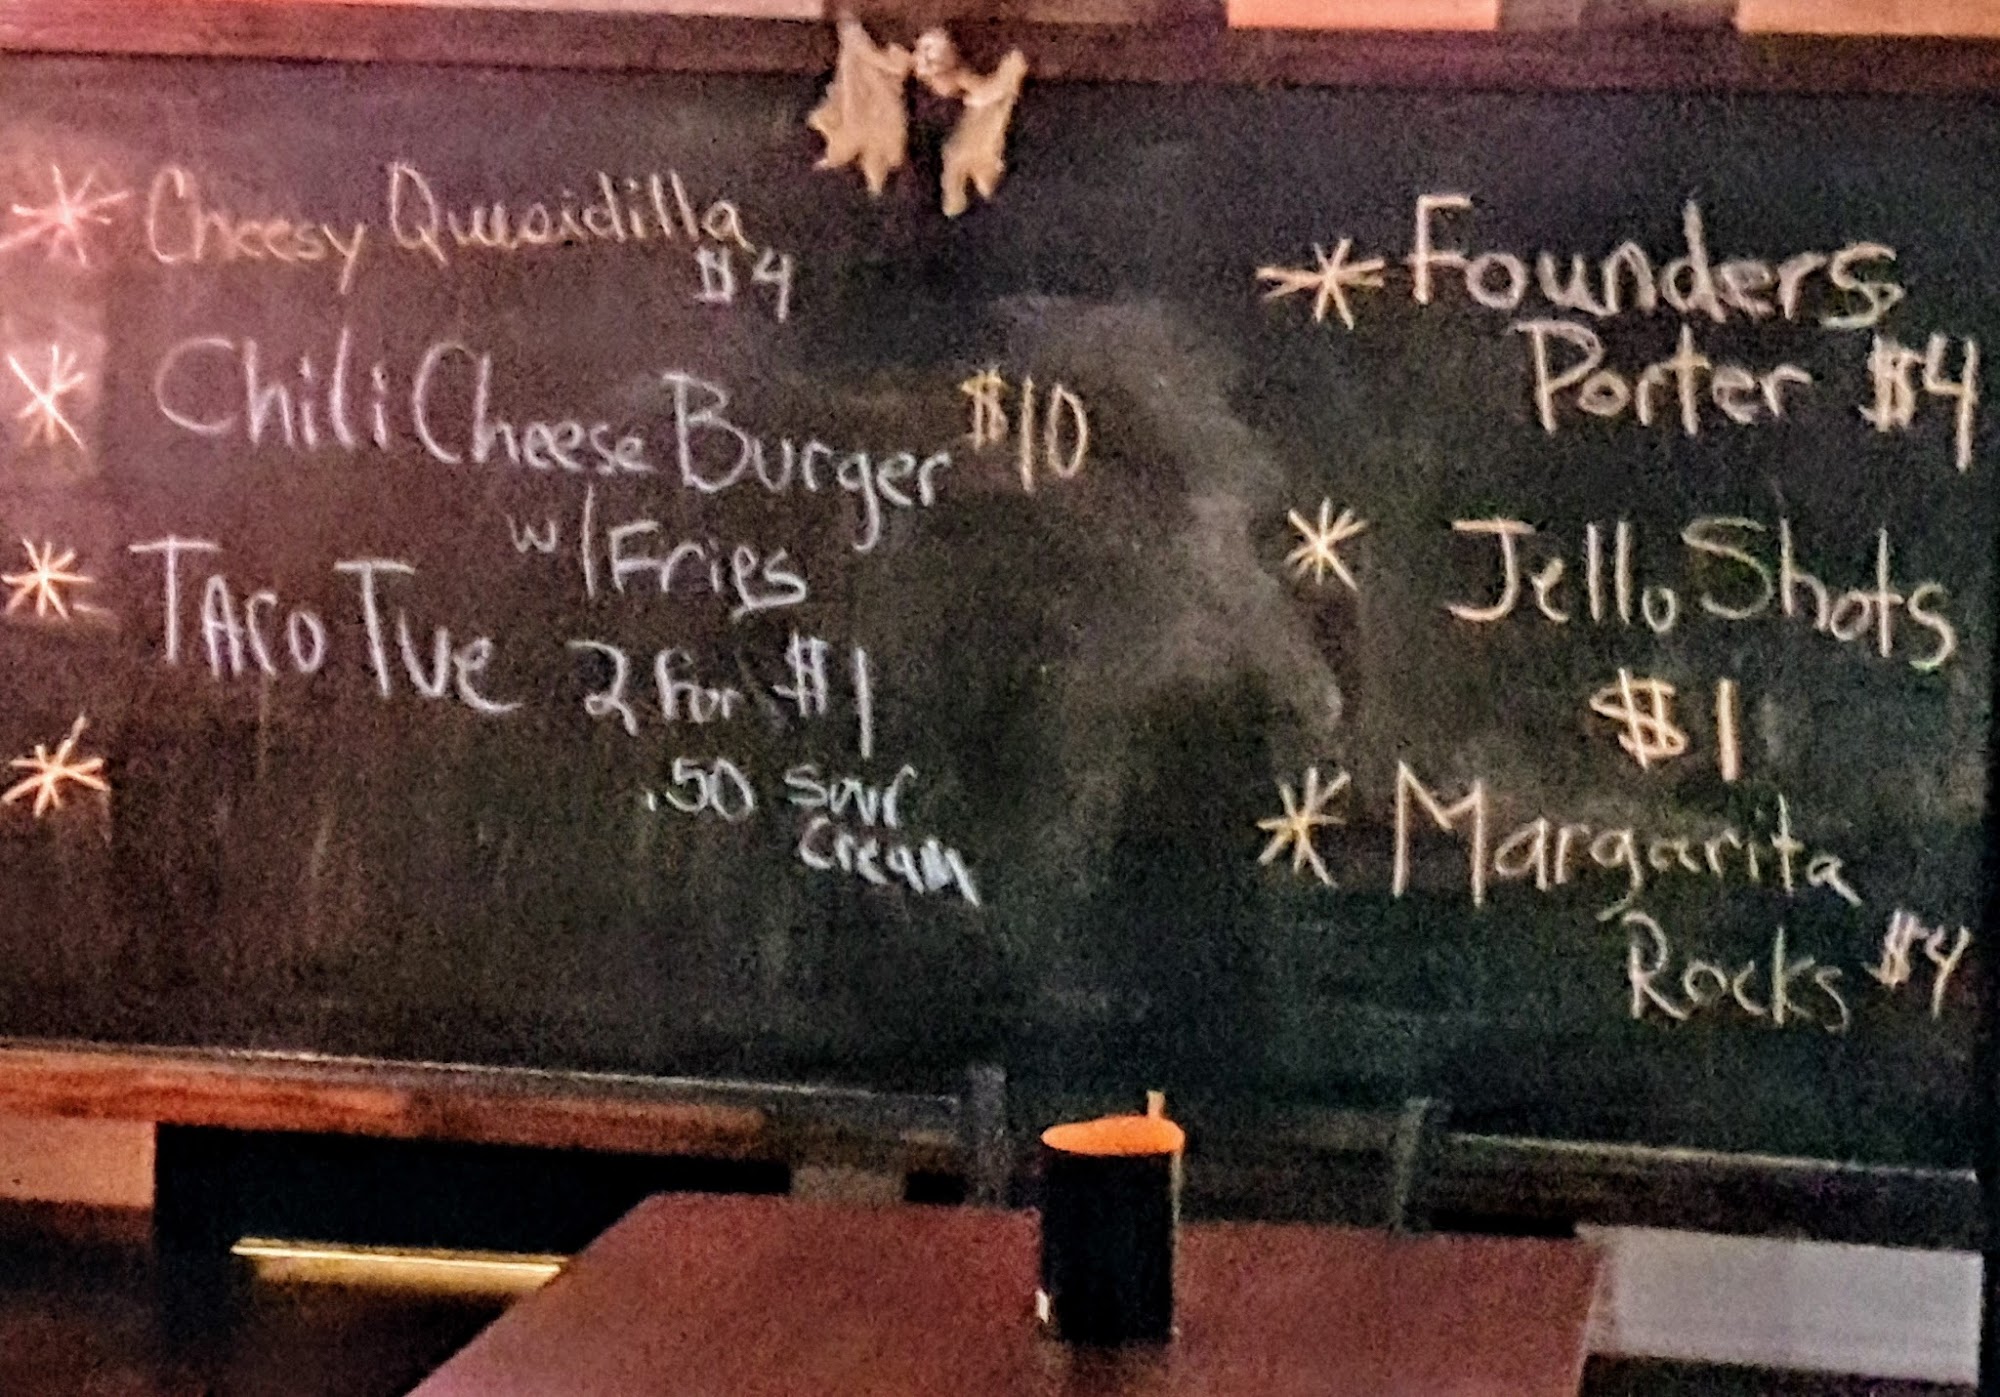 * Cheesy Quesidilla
$4
* Chili Cheese Burger $10
w/ Fries
* TACO TUE 2 for $1
.50 Sour
Cream
*
* Founders
Porter $4
* Jello Shots
$1
* Margarita
Rocks $4